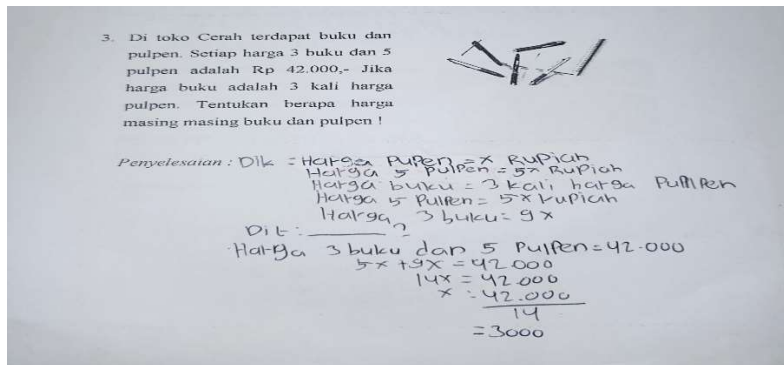 3. Di toko Cerah terdapat buku dan
pulpen. Setiap harga 3 buku dan 5
pulpen adalah Rp 42.000,- Jika
harga buku adalah 3 kali harga
pulpen. Tentukan berapa harga
masing masing buku dan pulpen !
Penyelesaian : Dik = Harga Pulpen = x Rupiah
Harga 5 pulpen = 5x Rupiah
Harga buku = 3 kali harga Pulpen
Harga 5 Pulpen = 5x rupiah
Harga 3 buku = 9x
Dit : ______ ?
Harga 3 buku dan 5 Pulpen = 42.000
5x + 9x = 42.000
14x = 42.000
x = 42.000
14
= 3000